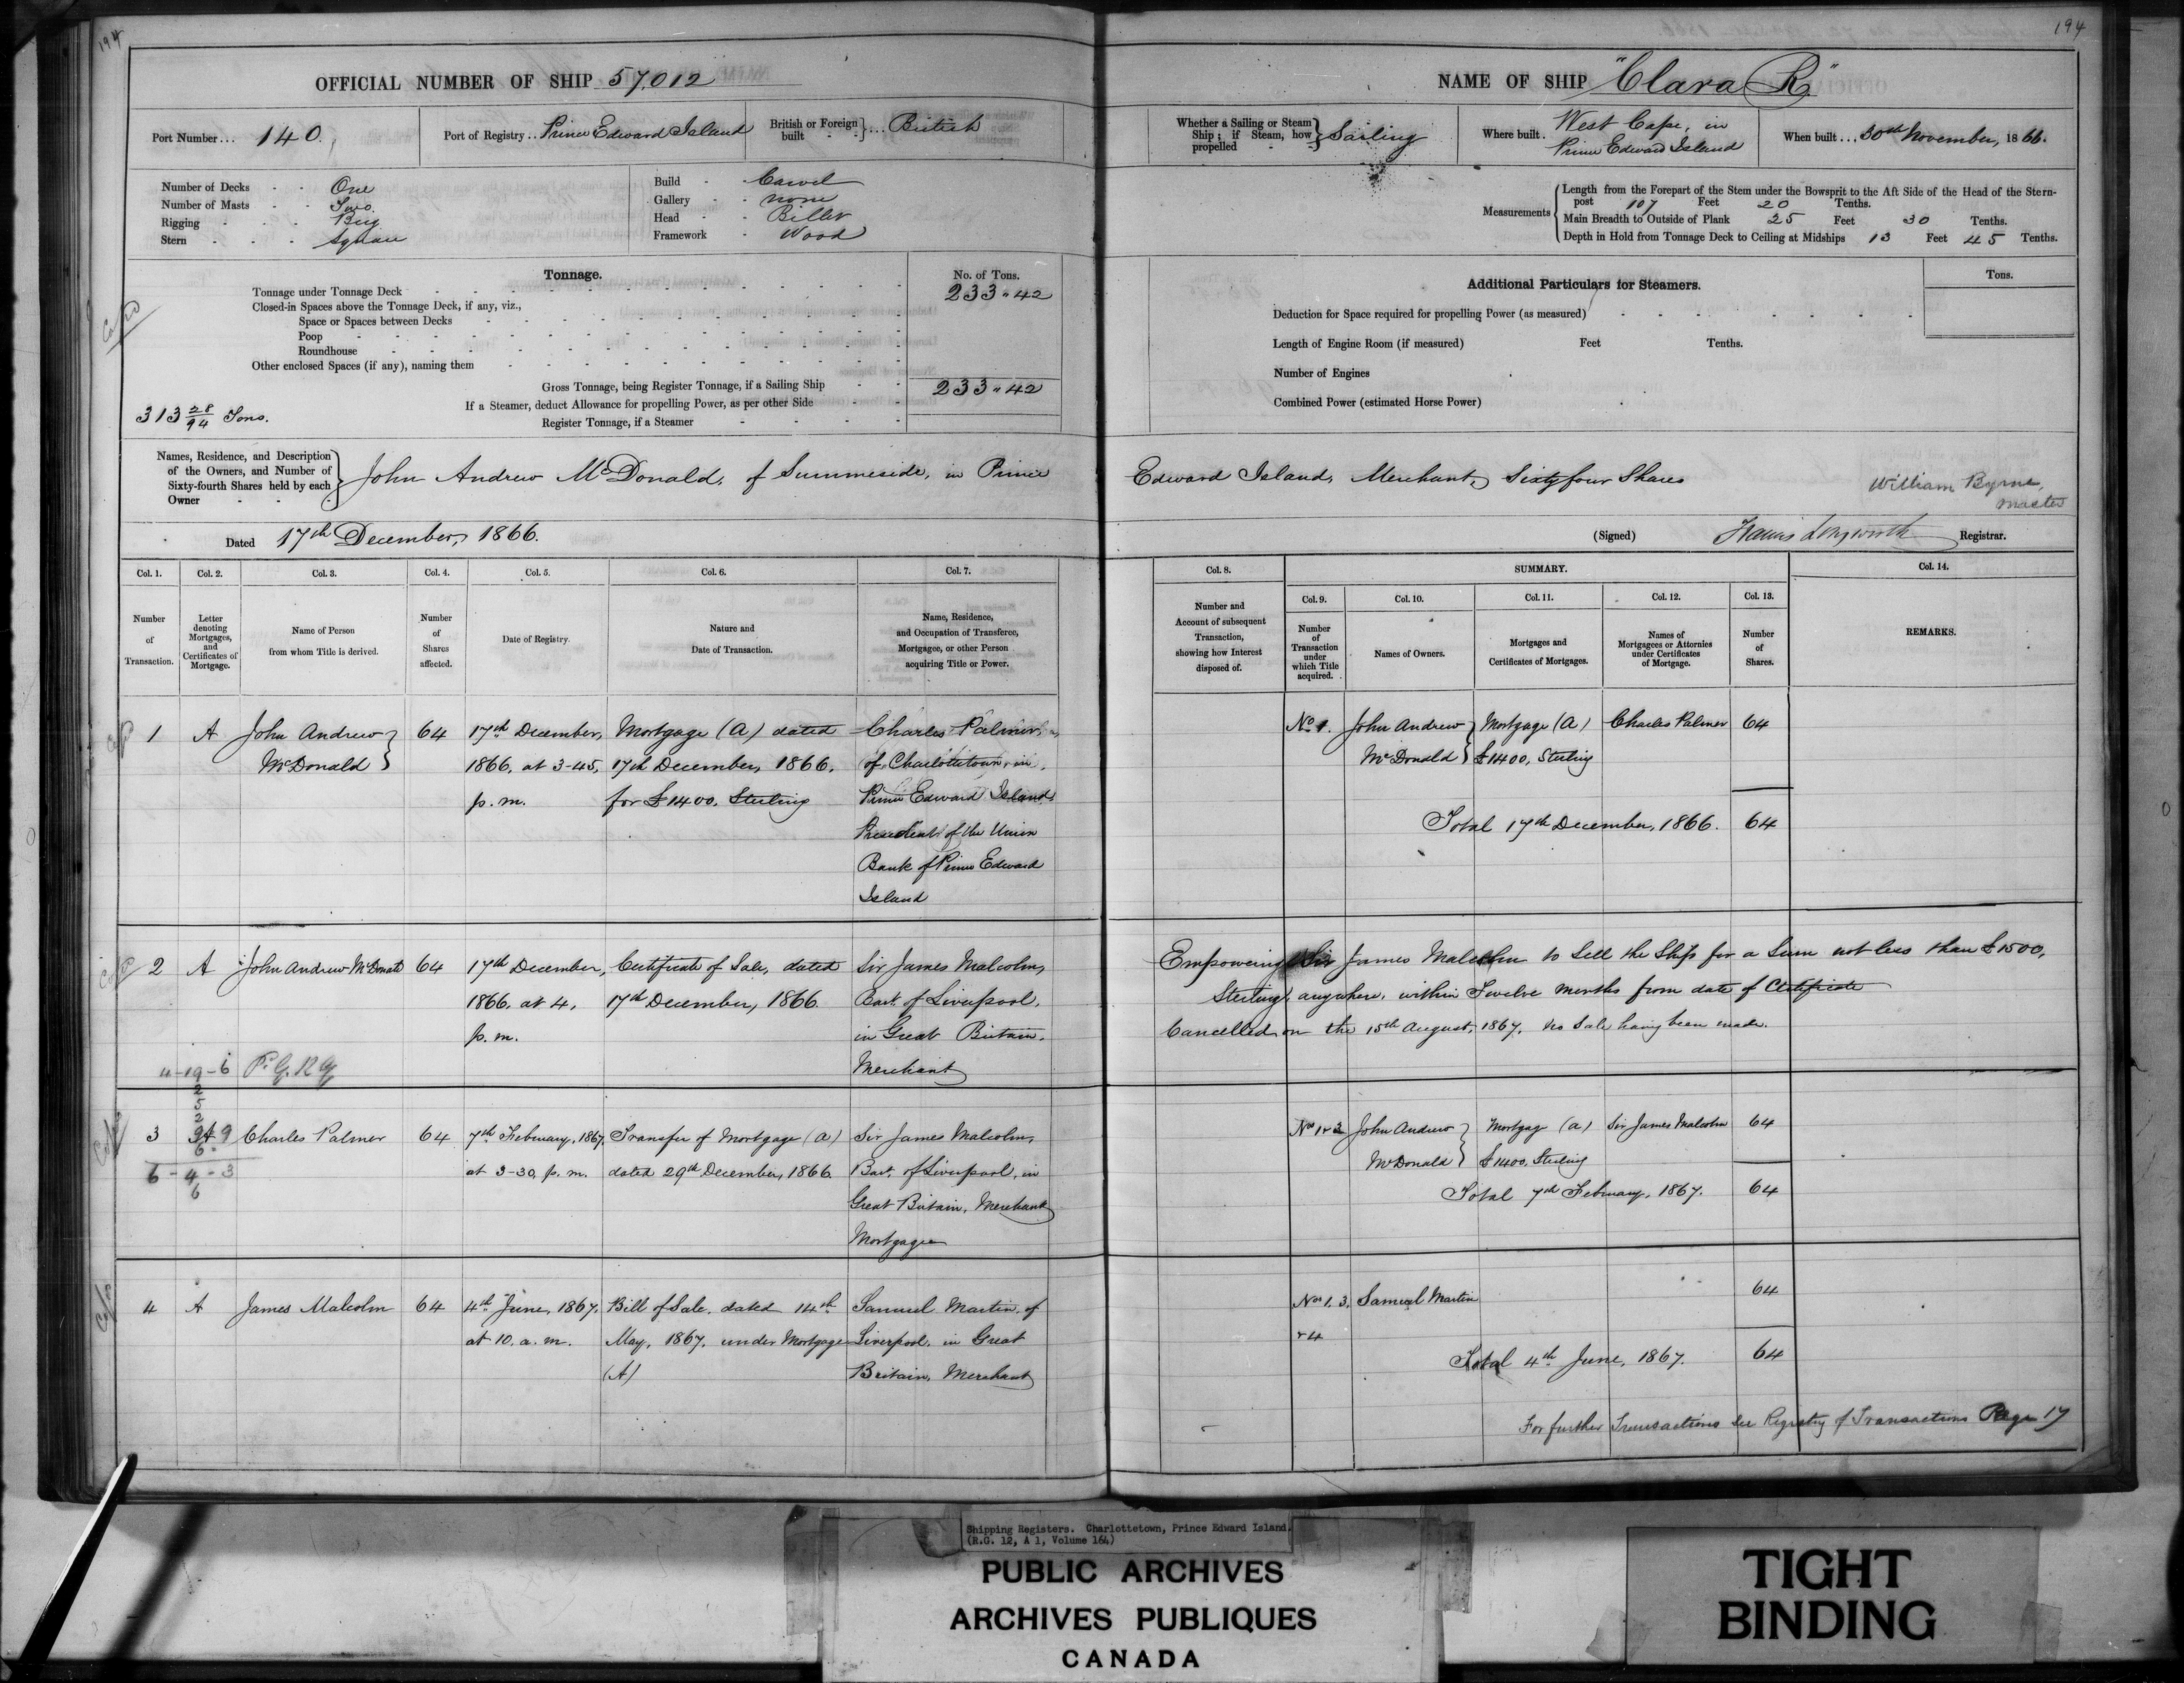 194
OFFICIAL NUMBER OF SHIP 57,012
Port Number... 140.
Port of Registry.. Prince Edward Island
British or Foreign built } ... British
Number of Decks - - One
Number of Masts - - Two
Rigging - - - Brig
Stern - - - Square
Build - - Carvel
Gallery - - none
Head - - Billet
Framework - Wood
Tonnage.
No. of Tons.
Tonnage under Tonnage Deck 233 " 42
Closed-in Spaces above the Tonnage Deck, if any, viz.,
Space or Spaces between Decks
Poop
Roundhouse
Other enclosed Spaces (if any), naming them
Gross Tonnage, being Register Tonnage, if a Sailing Ship 233 " 42
If a Steamer, deduct Allowance for propelling Power, as per other Side
Register Tonnage, if a Steamer
313 28/94 Tons.
194
NAME OF SHIP "Clara R."
Whether a Sailing or Steam Ship; if Steam, how propelled } Sailing
Where built. West Cape, in
Prince Edward Island
When built... 30th November, 1866.
Measurements
Length from the Forepart of the Stem under the Bowsprit to the Aft Side of the Head of the Stern-
post 107 Feet 20 Tenths.
Main Breadth to Outside of Plank 25 Feet 30 Tenths.
Depth in Hold from Tonnage Deck to Ceiling at Midships 13 Feet 45 Tenths.
Additional Particulars for Steamers.
Tons.
Deduction for Space required for propelling Power (as measured)
Length of Engine Room (if measured) Feet Tenths.
Number of Engines
Combined Power (estimated Horse Power)
Names, Residence, and Description
of the Owners, and Number of
Sixty-fourth Shares held by each
Owner
John Andrew McDonald, of Summerside, in Prince Edward Island, Merchant, Sixty four Shares
William Byrne,
Master
Dated 17th December, 1866.
(Signed) Francis Longworth Registrar.
Col. 1. Col. 2. Col. 3. Col. 4. Col. 5. Col. 6. Col. 7.
Number of Transaction.
Letter denoting Mortgages, and Certificates of Mortgage.
Name of Person from whom Title is derived.
Number of Shares affected.
Date of Registry.
Nature and Date of Transaction.
Name, Residence, and Occupation of Transferee, Mortgagee, or other Person acquiring Title or Power.
Col. 8.
Number and Account of subsequent Transaction, showing how Interest disposed of.
SUMMARY.
Col. 9. Col. 10. Col. 11. Col. 12. Col. 13. Col. 14.
Number of Transaction under which Title acquired.
Names of Owners.
Mortgages and Certificates of Mortgages.
Names of Mortgagees or Attornies under Certificates of Mortgage.
Number of Shares.
REMARKS.
1 A John Andrew 64 17th December, Mortgage (A) dated Charles Palmer,
McDonald 1866, at 3-45, 17th December, 1866, of Charlottetown, in
p.m. for £1400, Sterling Prince Edward Island,
President of the Union
Bank of Prince Edward
Island
No 1. John Andrew Mortgage (A) Charles Palmer 64
McDonald £1400, Sterling
Total 17th December, 1866. 64
2 A John Andrew McDonald 64 17th December, Certificate of Sale, dated Sir James Malcolm,
1866, at 4, 17th December, 1866 Bart. of Liverpool,
p.m. in Great Britain,
Merchant
4-19-6 P. G. R G
Empowering Sir James Malcolm to Sell the Ship for a Sum not less than £1500,
Sterling, anywhere, within Twelve Months from date of Certificate
Cancelled on the 15th August, 1867, no Sale having been made.
3 A Charles Palmer 64 7th February, 1867, Transfer of Mortgage (A) Sir James Malcolm,
at 3-30, p.m. dated 29th December, 1866. Bart. of Liverpool, in
Great Britain, Merchant
Mortgagee
6-4-3
6
Nos 1 & 3 John Andrew Mortgage (A) Sir James Malcolm 64
McDonald £1400, Sterling
Total 7th February, 1867. 64
4 A James Malcolm 64 4th June, 1867, Bill of Sale, dated 14th Samuel Martin, of
at 10. a.m. May, 1867, under Mortgage Liverpool, in Great
(A) Britain, Merchant
Nos 1. 3. Samuel Martin 64
& 4
Total 4th June, 1867. 64
For further Transactions see Registry of Transactions Page 17
Shipping Registers. Charlottetown, Prince Edward Island.
(R.G. 12, A 1, Volume 164)
PUBLIC ARCHIVES
ARCHIVES PUBLIQUES
CANADA
TIGHT
BINDING